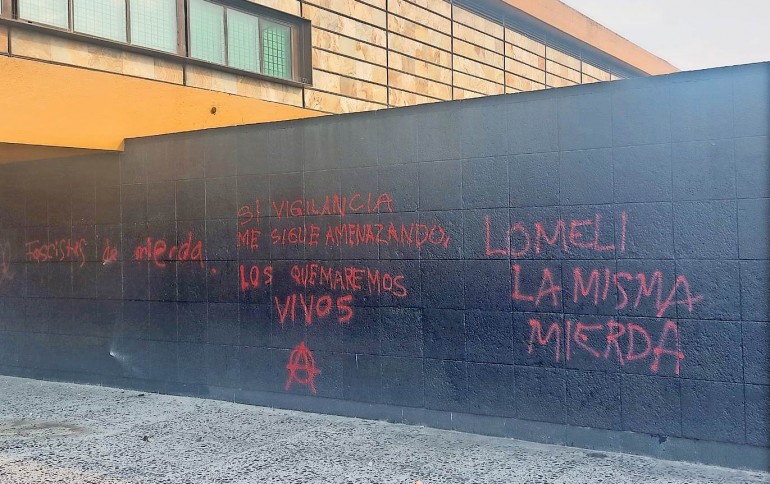 Fascistas de mierda.
SI VIGILANCIA
ME SIGUE AMENAZANDO,
LOS QUEMAREMOS
VIVOS
A
LOMELI
LA MISMA
MIERDA